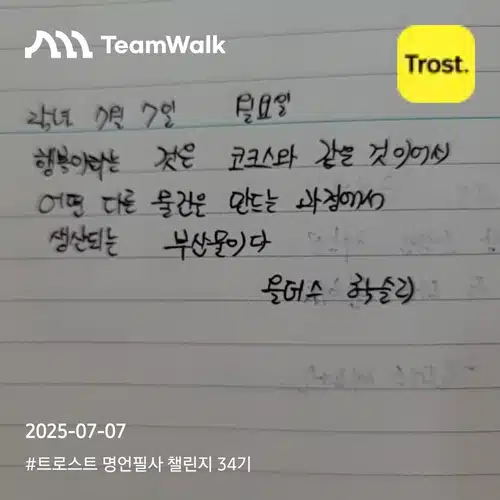 TeamWalk
Trost.
25년 7월 7일 월요일
행복이라는 것은 코크스와 같은 것이어서
어떤 다른 물건은 만드는 과정에서
생산되는 부산물이다
올더수 헉슬리
2025-07-07
#트로스트 명언필사 챌린지 34기